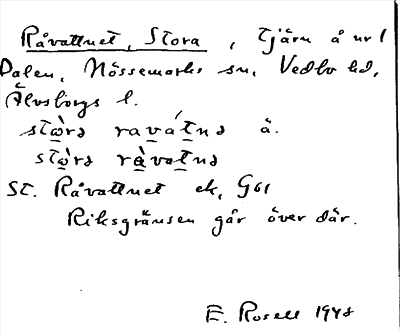 Råvattnet, Stora, tjärn å nr 1
Dalen, Nössemarks sn, Vedbo hd,
Älvsborgs l.
stòrə ravátnə ä.
stòrə ràvatnə
St. Råvattnet ek, G61
Riksgränsen går över där.
E. Rosell 1948